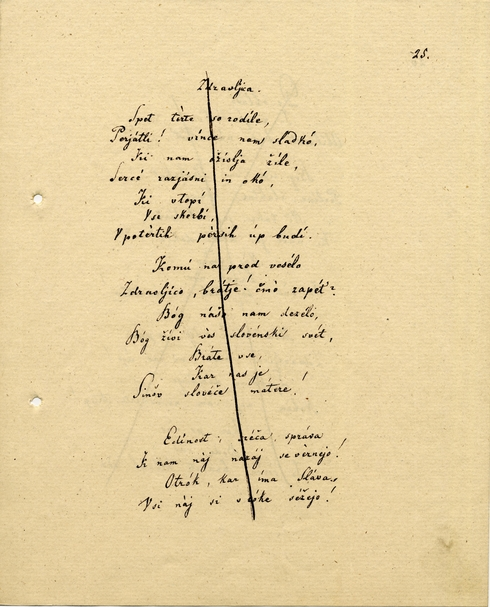 25.
Zdravljica.
Spet tèrte so rodile,
Perjátli! vince nam sladkó,
Ki nam ožívlja žile,
Sercé razjásni in okó,
Ki vtopi
Vse skerbí,
V potèrtih pèrsih úp budí.
Komú na pred vesélo
Zdravljico, brátje! čmò zapét'?
Bóg nášo nam deželo,
Bóg živi vès slovénski svét,
Bráte vse,
Kar nas je
Sinóv slovéče mátere!
Edínost, sréča, správa
K nam nàj nazáj se vèrnejo!
Otrók, kar íma Sláva,
Vsi nàj si v róke séžejo!